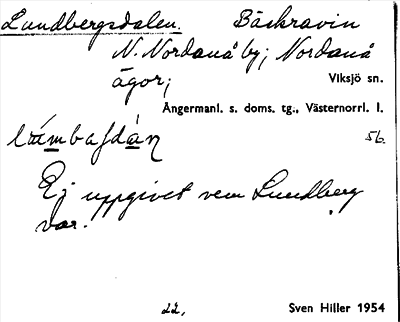 Lundbergsdalen. Bäckravin
N. Nordanå by; Nordanå
ägor; Viksjö sn.
Ångermanl. s. doms. tg., Västernorrl. l.
56.
Ej uppgivet vem Lundberg
var.
22. Sven Hiller 1954